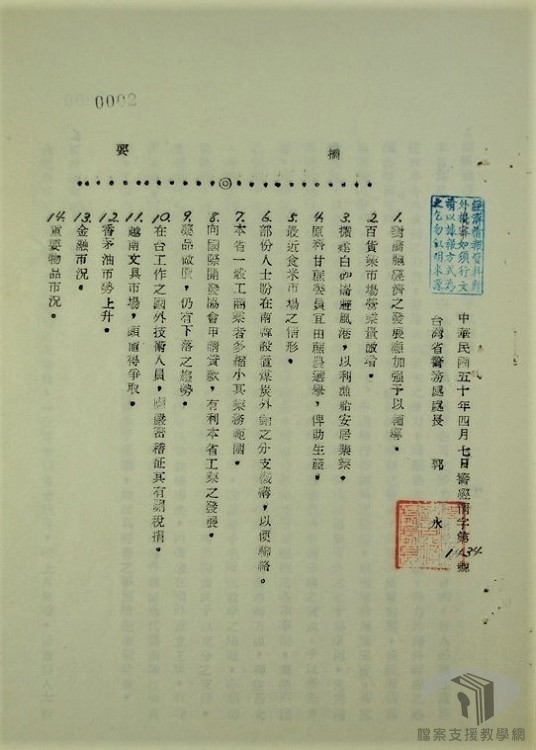 0002
摘 要
中華民國五十年四月七日警經衛字第1434號
台灣省警務處處長 郭 永
外機寧如須行文
請以據報方式為
之包勿敘明來源
1. 對 經濟之發展應加強予以輔導。
2. 百貨業市場營業量
3. 擴建白 避風港,以利漁船安居樂業。
4. 原料甘蔗委員宜由蔗農選舉,俾助生產。
5. 最近食米市場之情形。
6. 部份人士盼在南韓設置煤炭外銷之分支機構,以便聯絡。
7. 本省一般工商業者多縮小其業務範圍。
8. 向國際開發協會申請貸款,有利本省工業之發展。
9. 藥品 ,仍有下落之趨勢。
10. 在台工作之國外技術人員,應嚴密稽征其有關稅捐。
11. 越南文具市場,頗值得爭取。
12. 香茅油市勢上升。
13. 金融市況。
14. 重要物品市況。
檔案支援教學網